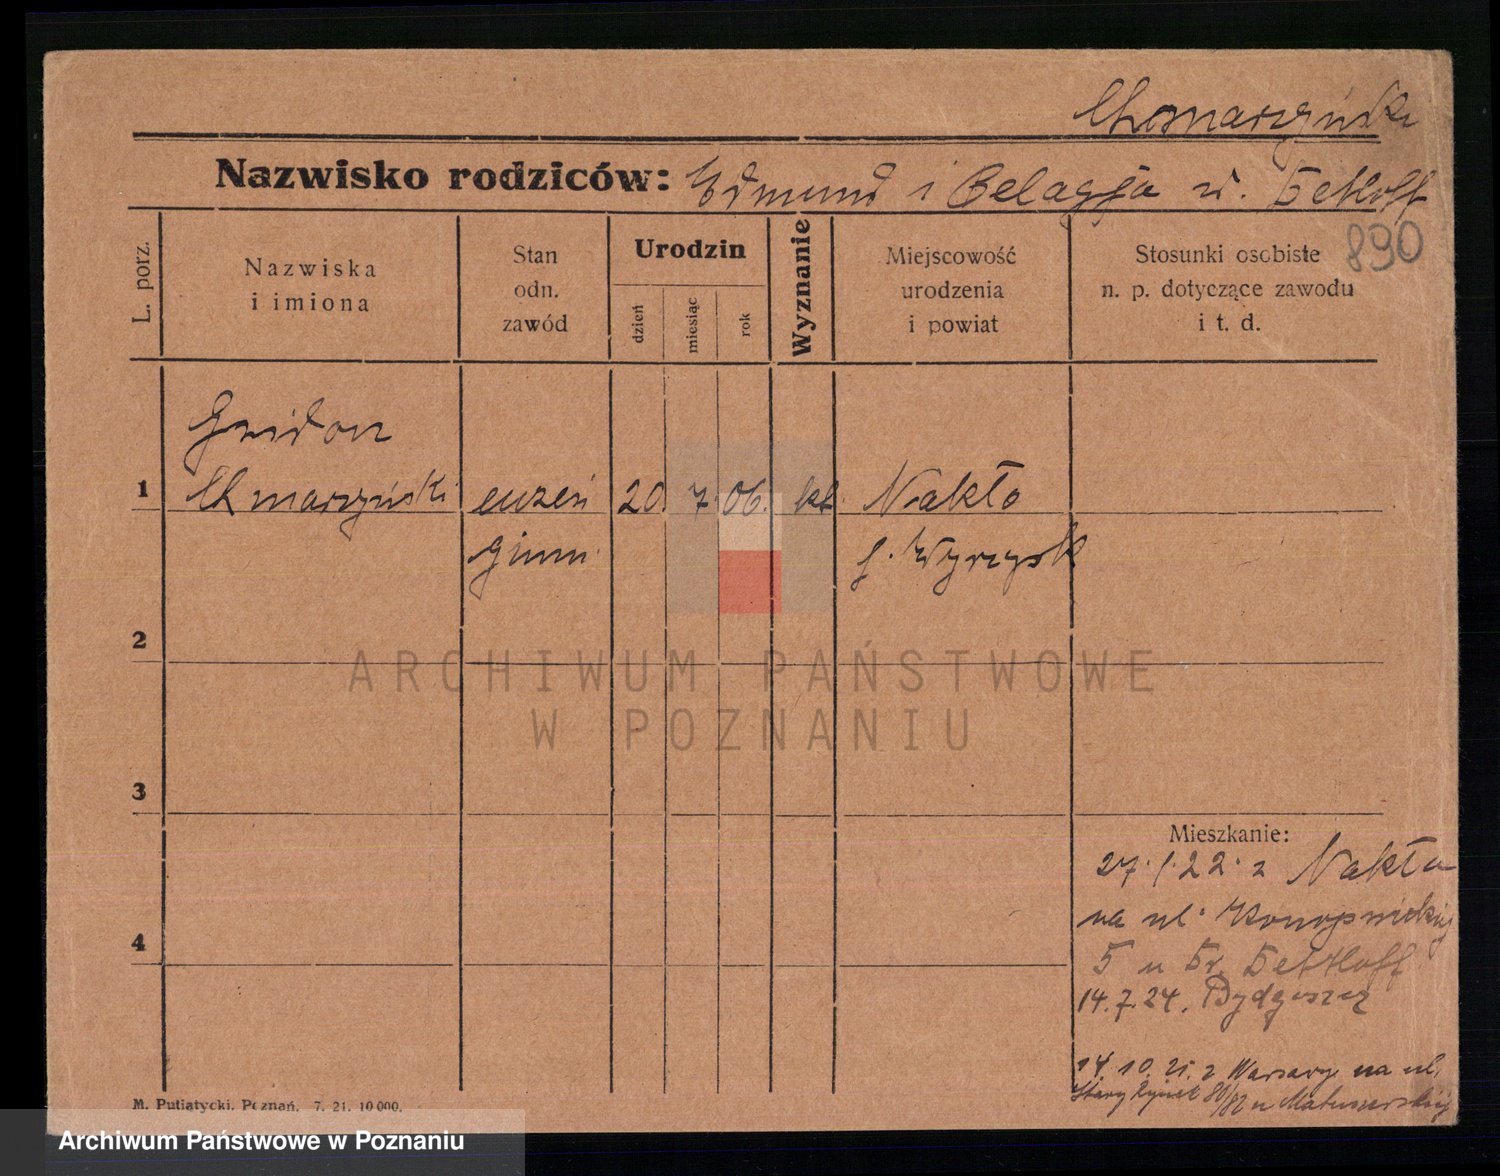 Chmarzyński
Nazwisko rodziców: Edmund i Pelagja z d. Dettloff
890
L. porz.
Nazwiska
i imiona
Stan
odn.
zawód
Urodzin
dzień
miesiąc
rok
Wyznanie
Miejscowość
urodzenia
i powiat
Stosunki osobiste
n. p. dotyczące zawodu
i t. d.
Gwidon
1 Chmarzyński uczeń 20. 7. 06. kt. Nakło
Gimn. p. Wyrzysk
2
3
4
Mieszkanie:
27.1.22. z Nakła
na ul. Konopnickiej
5 u Dettloff
14.7.24. Bydgoszcz
14.10.25. z Warszawy na ul.
Stary Rynek 80/82 u
M. Putiatycki. Poznań. 7. 21. 10 000.
ARCHIWUM PAŃSTWOWE
W POZNANIU
Archiwum Państwowe w Poznaniu